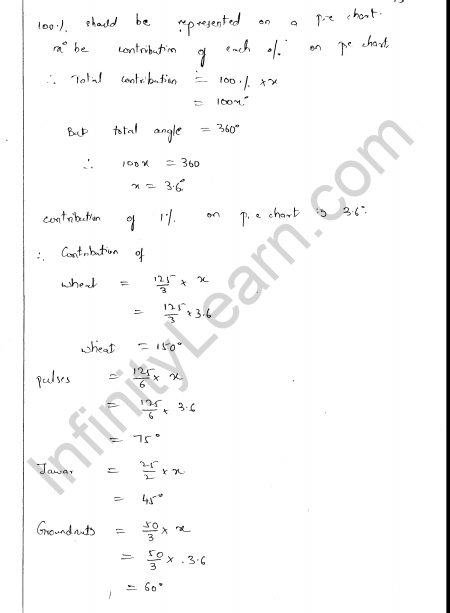 100% should be represented on a pie chart.
x° be contribution of each % on pie chart
∴ Total contribution = 100% × x
= 100x°
But total angle = 360°
∴ 100x = 360
x = 3.6°
contribution of 1% on pie chart is 3.6°.
∴ Contribution of
wheat = 125/3 × x
= 125/3 × 3.6
wheat = 150°
pulses = 125/6 × x
= 125/6 × 3.6
= 75°
Jawar = 25/2 × x
= 45°
Groundnuts = 50/3 × x
= 50/3 × .3.6
= 60°
InfinityLearn.com